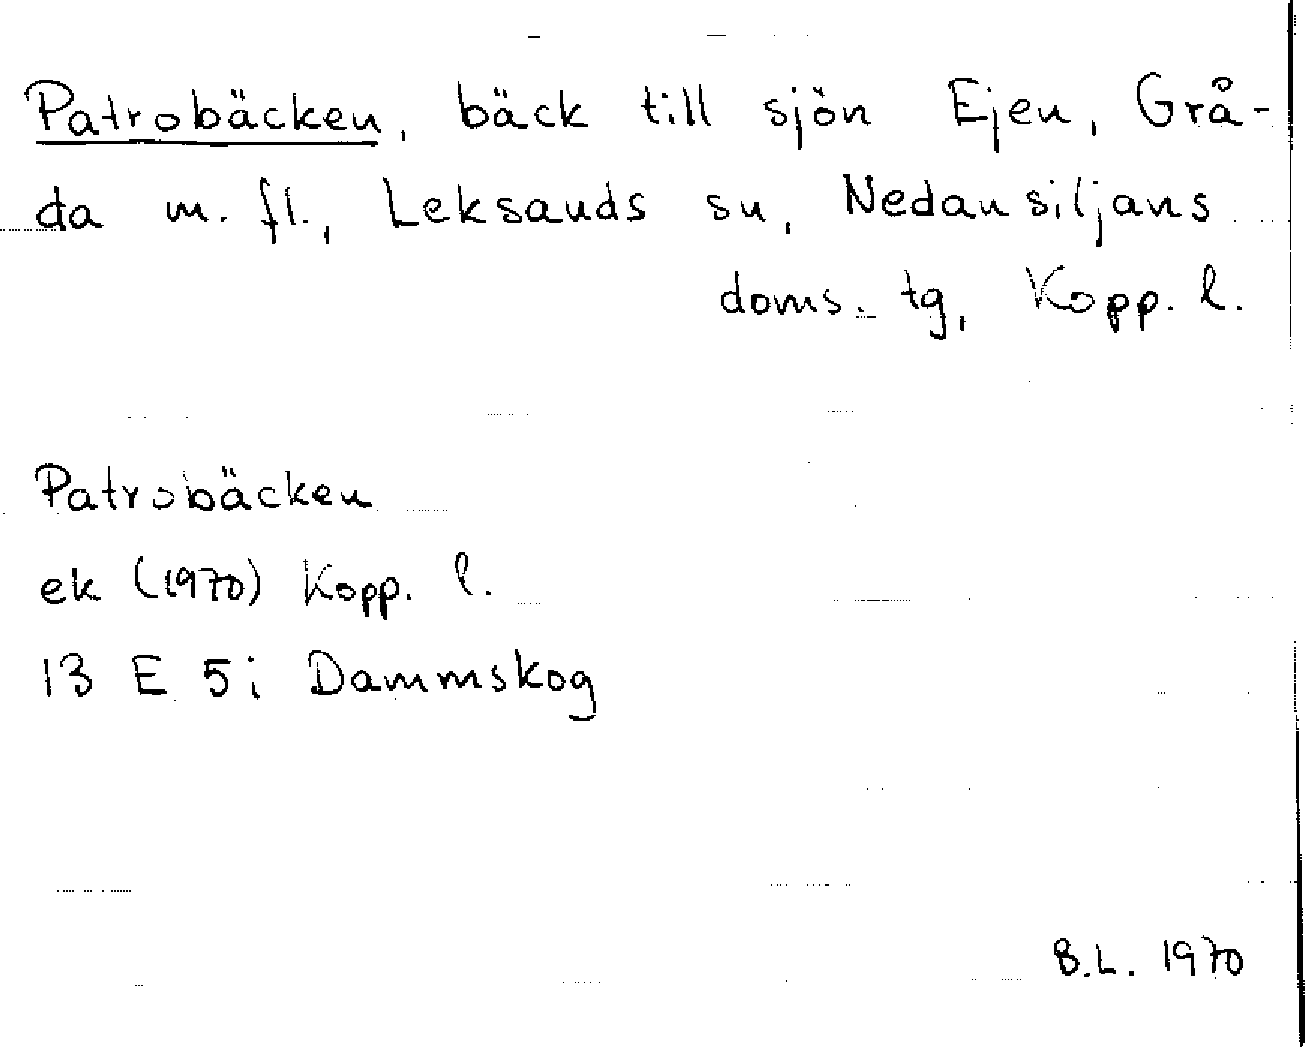 Patrobäcken, bäck till sjön Ejen, Grå-
da m. fl., Leksands sn, Nedansiljans
doms. tg, Kopp. l.
Patrobäcken
ek (1970) Kopp. l.
13 E 5i Dammskog
B.L. 1970